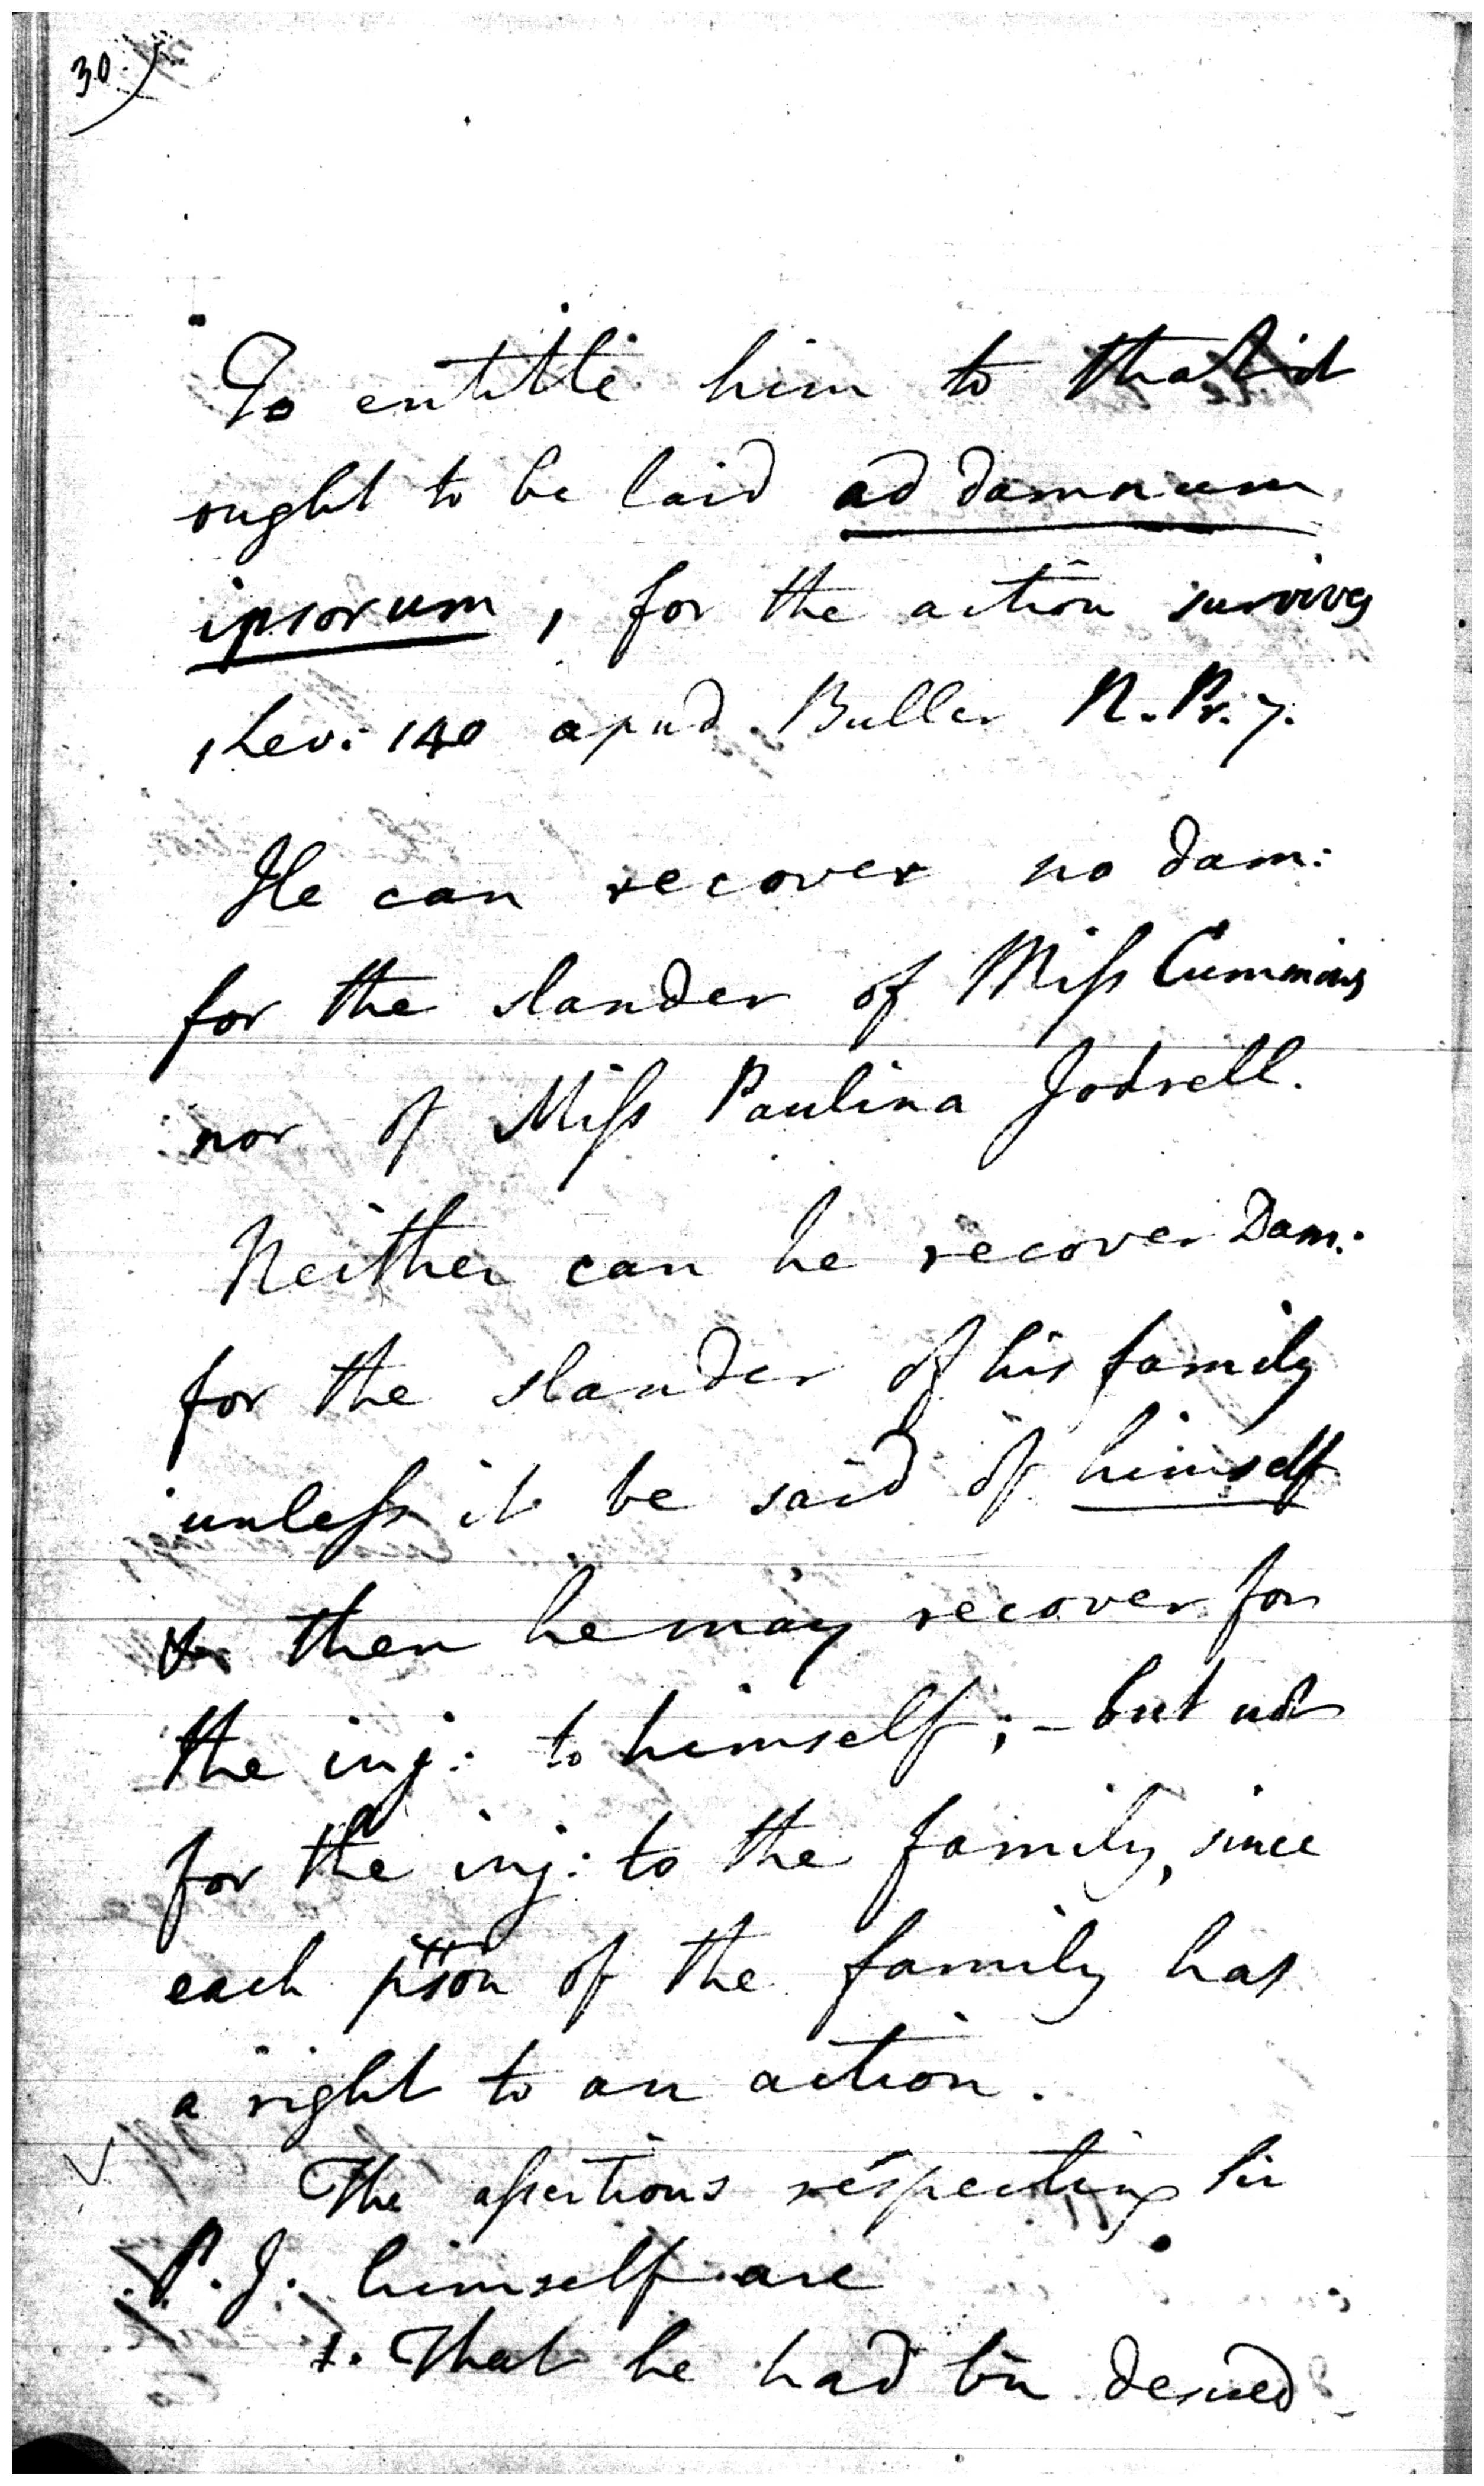 30.)
To entitle him to that it
ought to be laid ad damnum
ipsorum, for the action survives
1 Lev: 140 apud Buller N. Pr. 7.
He can recover no dam:
for the slander of Miſs Cummins
nor of Miſs Paulina Jodrell.
Neither can he recover Dam:
for the slander of his family
unleſs it be said of himself
& then he may recover for
the inj: to himself; - but not
for the inj: to the family, since
each pson of the family has
a right to an action.
The aſsertions respecting Sir
P. J. himself are
1. That he had bn desired